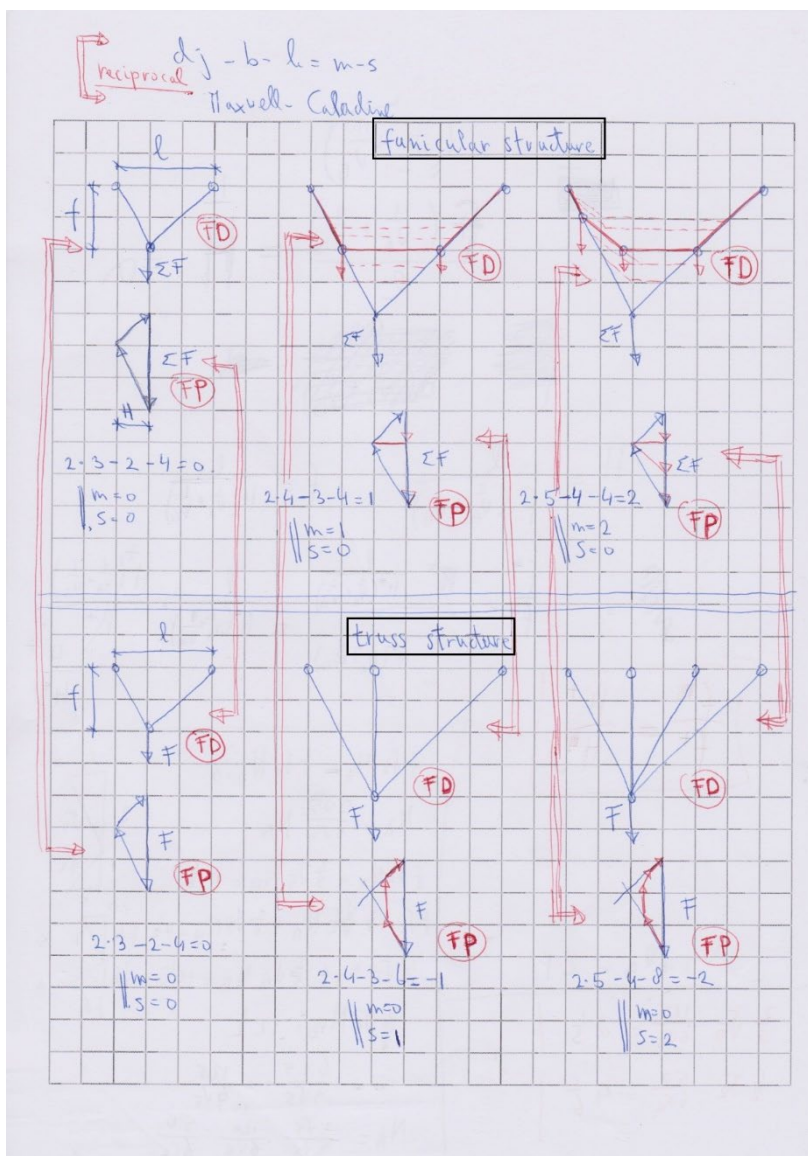 dj - b - k = m-s
reciprocal
Maxwell - Caladine
funicular structure
l
f
FD
ΣF
ΣF
FP
H
2·3-2-4=0
m=0
S=0
FD
ΣF
ΣF
FP
2·4-3-4=1
m=1
S=0
FD
ΣF
ΣF
FP
2·5-4-4=2
m=2
S=0
truss structure
l
f
FD
F
F
FP
2·3-2-4=0
m=0
S=0
FD
F
F
FP
2·4-3-6=-1
m=0
S=1
FD
F
F
FP
2·5-4-8=-2
m=0
S=2